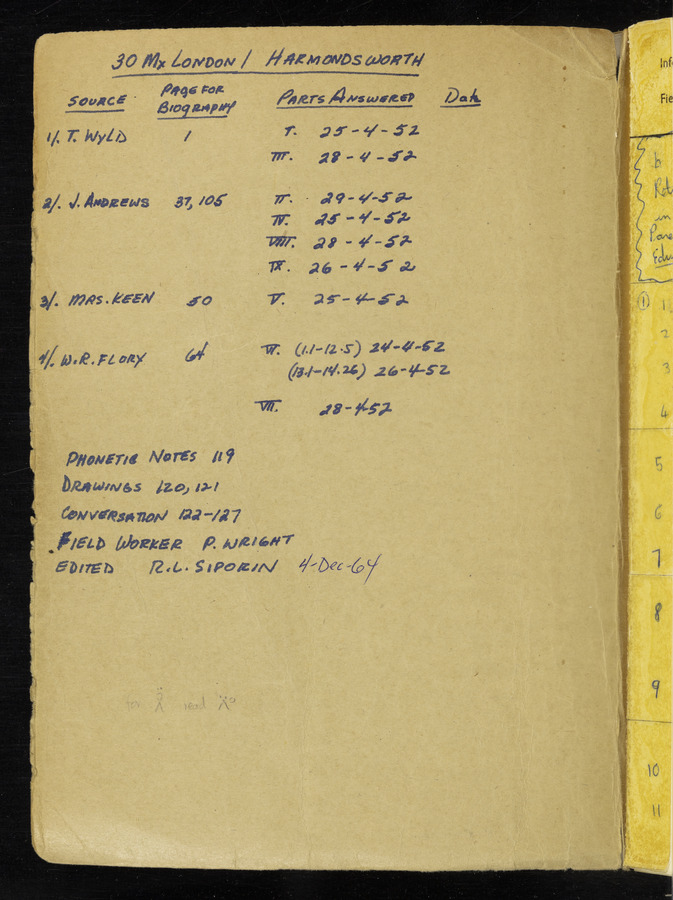 30 Mx LONDON / HARMONDSWORTH
SOURCE PAGE FOR BIOGRAPHY PARTS ANSWERED Date
1/. T. WYLD 1 I. 25-4-52
III. 28-4-52
2/. J. ANDREWS 37, 105 II. 29-4-52
IV. 25-4-52
VIII. 28-4-52
IX. 26-4-52
3/. MRS. KEEN 50 V. 25-4-52
4/. W.R. FLORY 64 VI. (1.1-12.5) 24-4-52
(13.1-14.26) 26-4-52
VII. 28-4-52
PHONETIC NOTES 119
DRAWINGS 120, 121
CONVERSATION 122-127
FIELD WORKER P. WRIGHT
EDITED R.L. SIPORIN 4-Dec-64
Inf
Fie
b
Ret
in
Pare
Edu
① 1
2
3
4
5
6
7
8
9
10
11